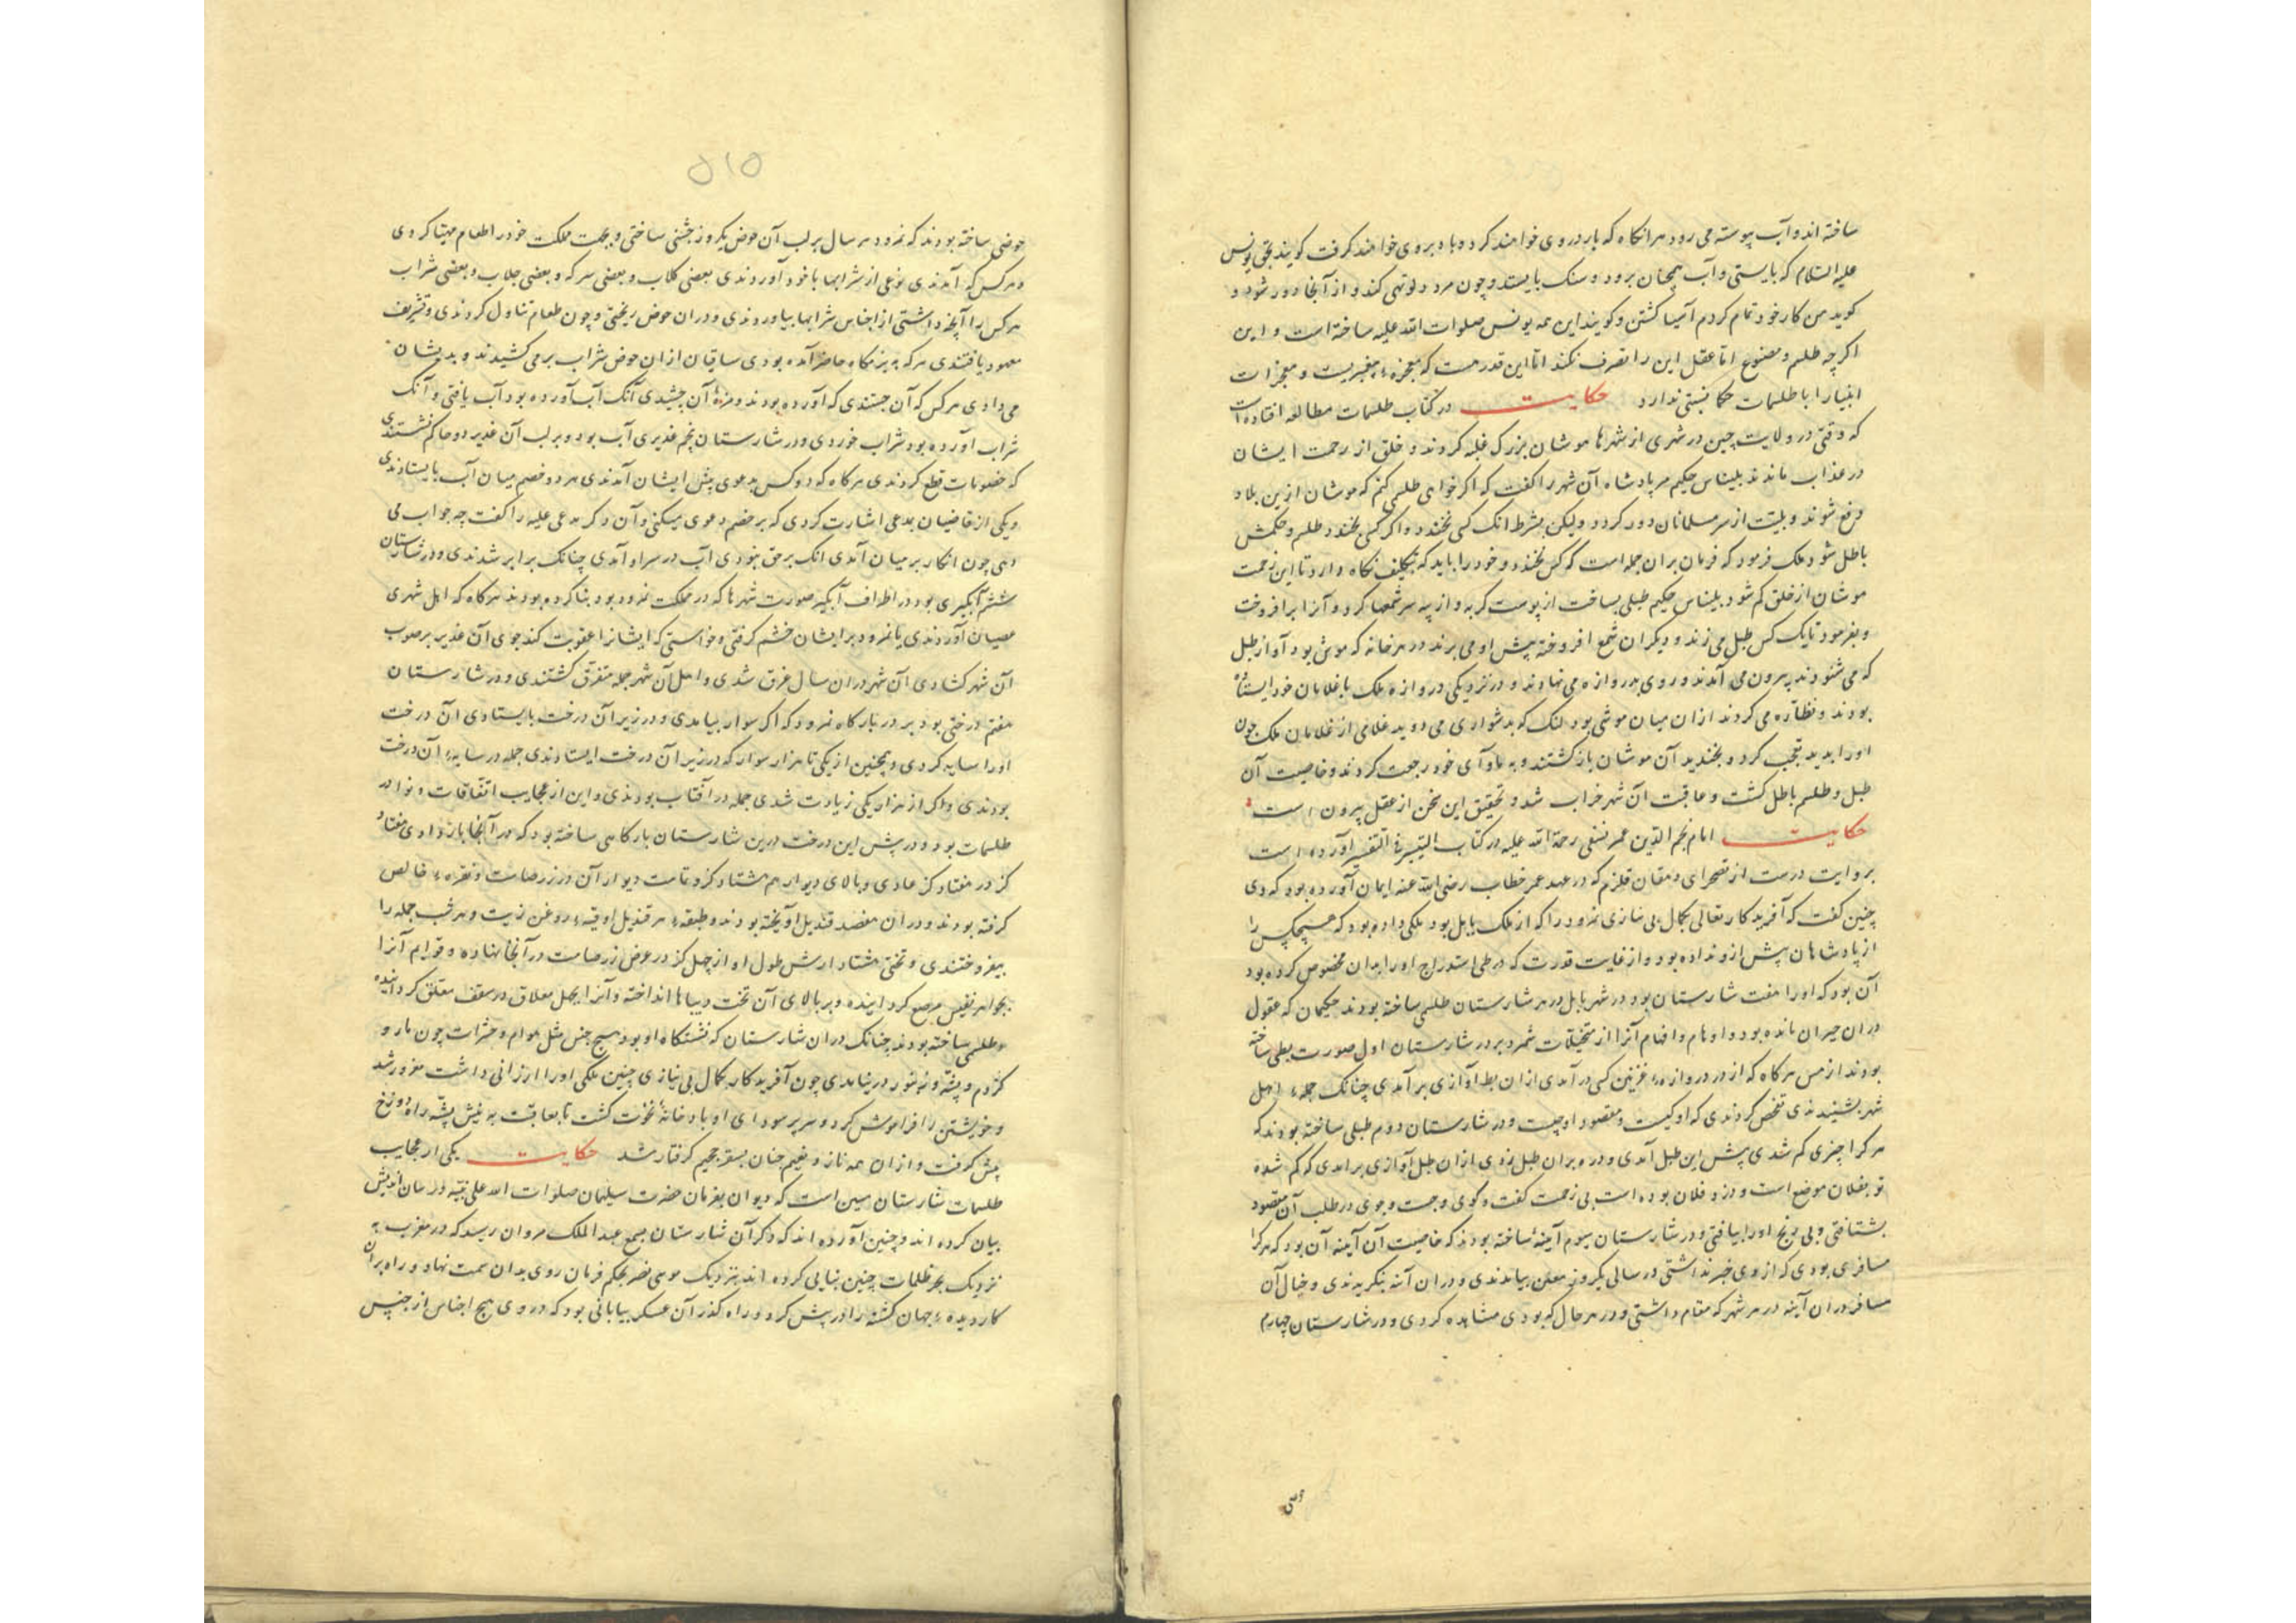 ساخته اند و آب پیوسته می رود هر انکاه که بار در وی خواهند کرد و باد بروی خواهند کرفت کویند بحق یونس
علیه السلام که بایستی و آب همچنان برود و سنک بایستد و چون مرد دلو تهی کند و از آنجا دور شود و
کوید من کار خود تمام کردم آسیا کشتن و کویند این همه یونس صلوات الله علیه ساخته است و این
اکر چه طلسم و مصنوع اما عقل این را تصرف نکند اما این قدر هست که معجزهء پیغمبریست و معجزات
انبیا را با طلسمات حکما نسبتی ندارد حکایت در کتاب طلسمات مطالعه افتاده است
که وقتی در ولایت چین در شهری از شهرها موشان بزرک غلبه کردند و خلق از زحمت ایشان
در عذاب ماندند بلیناس حکیم مر پادشاه آن شهر را کفت که اکر خواهی طلسمی کنم که موشان ازین بلاد
دفع شوند و بلیت از سر مسلمانان دور کردد ولیکن بشرط انک کسی نخندد و اکر کسی بخندد طلسم و حکمش
باطل شود ملک فرمود که فرمان بران جمله است که کس نخندد و خود را باید که بتکلف نکاه دارد تا این زحمت
موشان از خلق کم شود بلیناس حکیم طبلی بساخت از پوست کربه و از پیه سر شمعها کرد و آنرا برافروخت
و بفرمود تا یک کس طبل می زند و دیکران شمع افروخته پیش او می برند در هر خانه که موش بود آواز طبل
که می شنودند بیرون می آمدند و روی بدروازه می نهادند و در نزدیکی دروازه ملک با غلامان خود ایستاده
بودند و نظاره می کردند از ان میان موشی بود لنک که بدشواری می دوید غلامی از غلامان ملک چون
او را بدید تعجب کرد و بخندید آن موشان بازکشتند و به ماوآی خود رجعت کردند و خاصیت آن
طبل و طلسم باطل کشت و عاقبت آن شهر خراب شد و تحقیق این سخن از عقل بیرون است
حکایت امام نجم الدین عمر نسفی رحمة الله علیه در کتاب التیسیر فی التفسیر آورده است
بروایت درست از دهقان قلزم که در عهد عمر خطاب رضی الله عنه ایمان آورده بود که وی
چنین کفت که آفریدکار تعالی بکمال بی نیازی نمرود را که از ملک بابل بود ملکی داده بود که هیچکس را
از پادشاهان پیش از و نداده بود و از غایت قدرت که در طی استدراج او را بدان مخصوص کرده بود
آن بود که او را هفت شارستان بود در شهر بابل در هر شارستان طلسمی ساخته بودند حکیمان که عقول
در ان حیران مانده بود و اوهام و افهام آنرا از متخیلات شمرد و در شارستان اول صورت بطی ساخته
بودند از مس هر کاه که از در دروازهء غزنین کسی در آمدی از ان بط آوازی برآمدی چنانک جملهء اهل
شهر بشنیدندی تفحص کردندی که او کیست و مقصود او چیست و در شارستان دوم طبلی ساخته بودند که
هر کرا چیزی کم شدی پیش این طبل آمدی و ده بران طبل زدی از ان طبل آوازی برامدی که کم شده
تو بفلان موضع است و دزد فلان بوده است بی زحمت کفت و کوی و جست و جوی در طلب آن مقصود
بشتافتی و بی رنج او را بیافتی و در شارستان سیوم آینهٔ ساخته بودند که خاصیت آن آینه آن بود که هرکرا
مسافری بودی که از وی خبر نداشتی در سالی یکروز معلن بیامدندی و در ان آینه بنکریدندی و خیال آن
مسافر در ان آینه در هر شهر که مقام داشتی و در هر حال که بودی مشاهده کردی و در شارستان چهارم
۵۱۵
حوضی ساخته بودند که نمرود هر سال بر لب آن حوض یکروز جشنی ساختی و بجهت مملکت خود را طعام مهیا کردی
و هر کس که آمدندی نوعی از شرابها با خود آوردندی بعضی کلاب و بعضی سرکه و بعضی جلاب و بعضی شراب
هر کس را آنچه داشتی از اجناس شرابها بیاوردندی و در ان حوض ریختی و چون طعام تناول کردندی و تشریف
معهود یافتندی هر که به بزمکاه حاضر آمده بودی ساقیان از ان حوض شراب برمی کشیدند و بدیشان
می دادی هر کس که آن جستندی که آورده بودند و مزهٔ آن چشیدی آنک آب آورده بود آب یافتی و آنک
شراب آورده بود شراب خوردی و در شارستان پنجم غدیری آب بود و بر لب آن غدیر دو حاکم نشستندی
که خصومات قطع کردندی هر کاه که دو کس بدعوی پیش ایشان آمدندی هر دو خصم میان آب بایستادندی
و یکی از قاضیان بمدعی اشارت کردی که بر خصم دعوی میکنی و آن دکر مدعی علیه را کفت چه جواب می
دهی چون انکار بر میان آمدی انک برحق نبودی آب در سر او آمدی چنانک برابر شدندی و در شارستان
ششم آبکیری بود در اطراف آبکیر صورت شهرها که در مملکت نمرود بود بنا کرده بودند هر کاه که اهل شهری
عصیان آوردندی یا نمرود بر ایشان خشم کرفتی و خواستی که ایشانرا عقوبت کند جوی آن غدیر بر صوب
آن شهر کشادی آن شهر در ان سال غرق شدی و اهل آن شهر جمله متفرق کشتندی و در شارستان
هفتم درختی بود بر در بارکاه نمرود که اکر سوار بیامدی و در زیر آن درخت بایستادی آن درخت
او را سایه کردی و همچنین از یکی تا هزار سوار که در زیر آن درخت ایستادندی جمله در سایهء آن درخت
بودندی و اکر از هزار یکی زیادت شدی جمله در آفتاب بودندی و این از عجایب اتفاقات و نوادر
طلسمات بود و در پیش این درخت درین شارستان بارکاهی ساخته بود که در آنجا بار دادی هفتاد
کز در هفتاد کز عادی و بالای دیوار هم هشتاد کز و تمامت دیوار آن در زر صامت و نقرهء خالص
کرفته بودند و در ان هفصد قندیل آویخته بودند و طبقهء هر قندیل اوقیهء روغن زیت و هر شب جمله را
بیفروختندی و تختی هشتاد ارش طول او از چهل کز در عرض زر صامت در آنجا نهاده و قوایم آنرا
بجواهر نفیس مرصع کردانیده و بر بالای آن تخت دیباها انداخته و آنرا بحبل معلاق در سقف معلق کردانیده
و طلسمی ساخته بودند چنانک در ان شارستان که نشستکاه او بود هیچ جنس مثل هوام و حشرات چون مار و
کژدم و پشه و زنبور در نیامدی چون آفریدکار بکمال بی نیازی چنین ملکی او را ارزانی داشت مغرور شد
و خویشتن را فراموش کرد و سر پر سودای او بادخانهٔ نخوت کشت تا بعاقبت به نیش پشه راه دوزخ
پیش کرفت و از ان همه ناز و نعیم چنان بسقر جحیم کرفتار شد حکایت یکی از عجایب
طلسمات شارستان مسین است که دیوان بفرمان حضرت سلیمان صلوات الله علی نبینه در مان اندیش
بیان کرده اند و چنین آورده اند که ذکر آن شارستان بسمع عبد الملک مروان رسید که در مغرب به
نزدیک بحر ظلمات چنین بنایی کرده اند بنزدیک موسی نصر بحکم فرمان روی بدان سمت نهاد و راه بران
کاردیدهء جهان کشته را در پیش کرد و راه کذر آن عسکر بیابانی بود که در وی هیچ اجناس از جنس